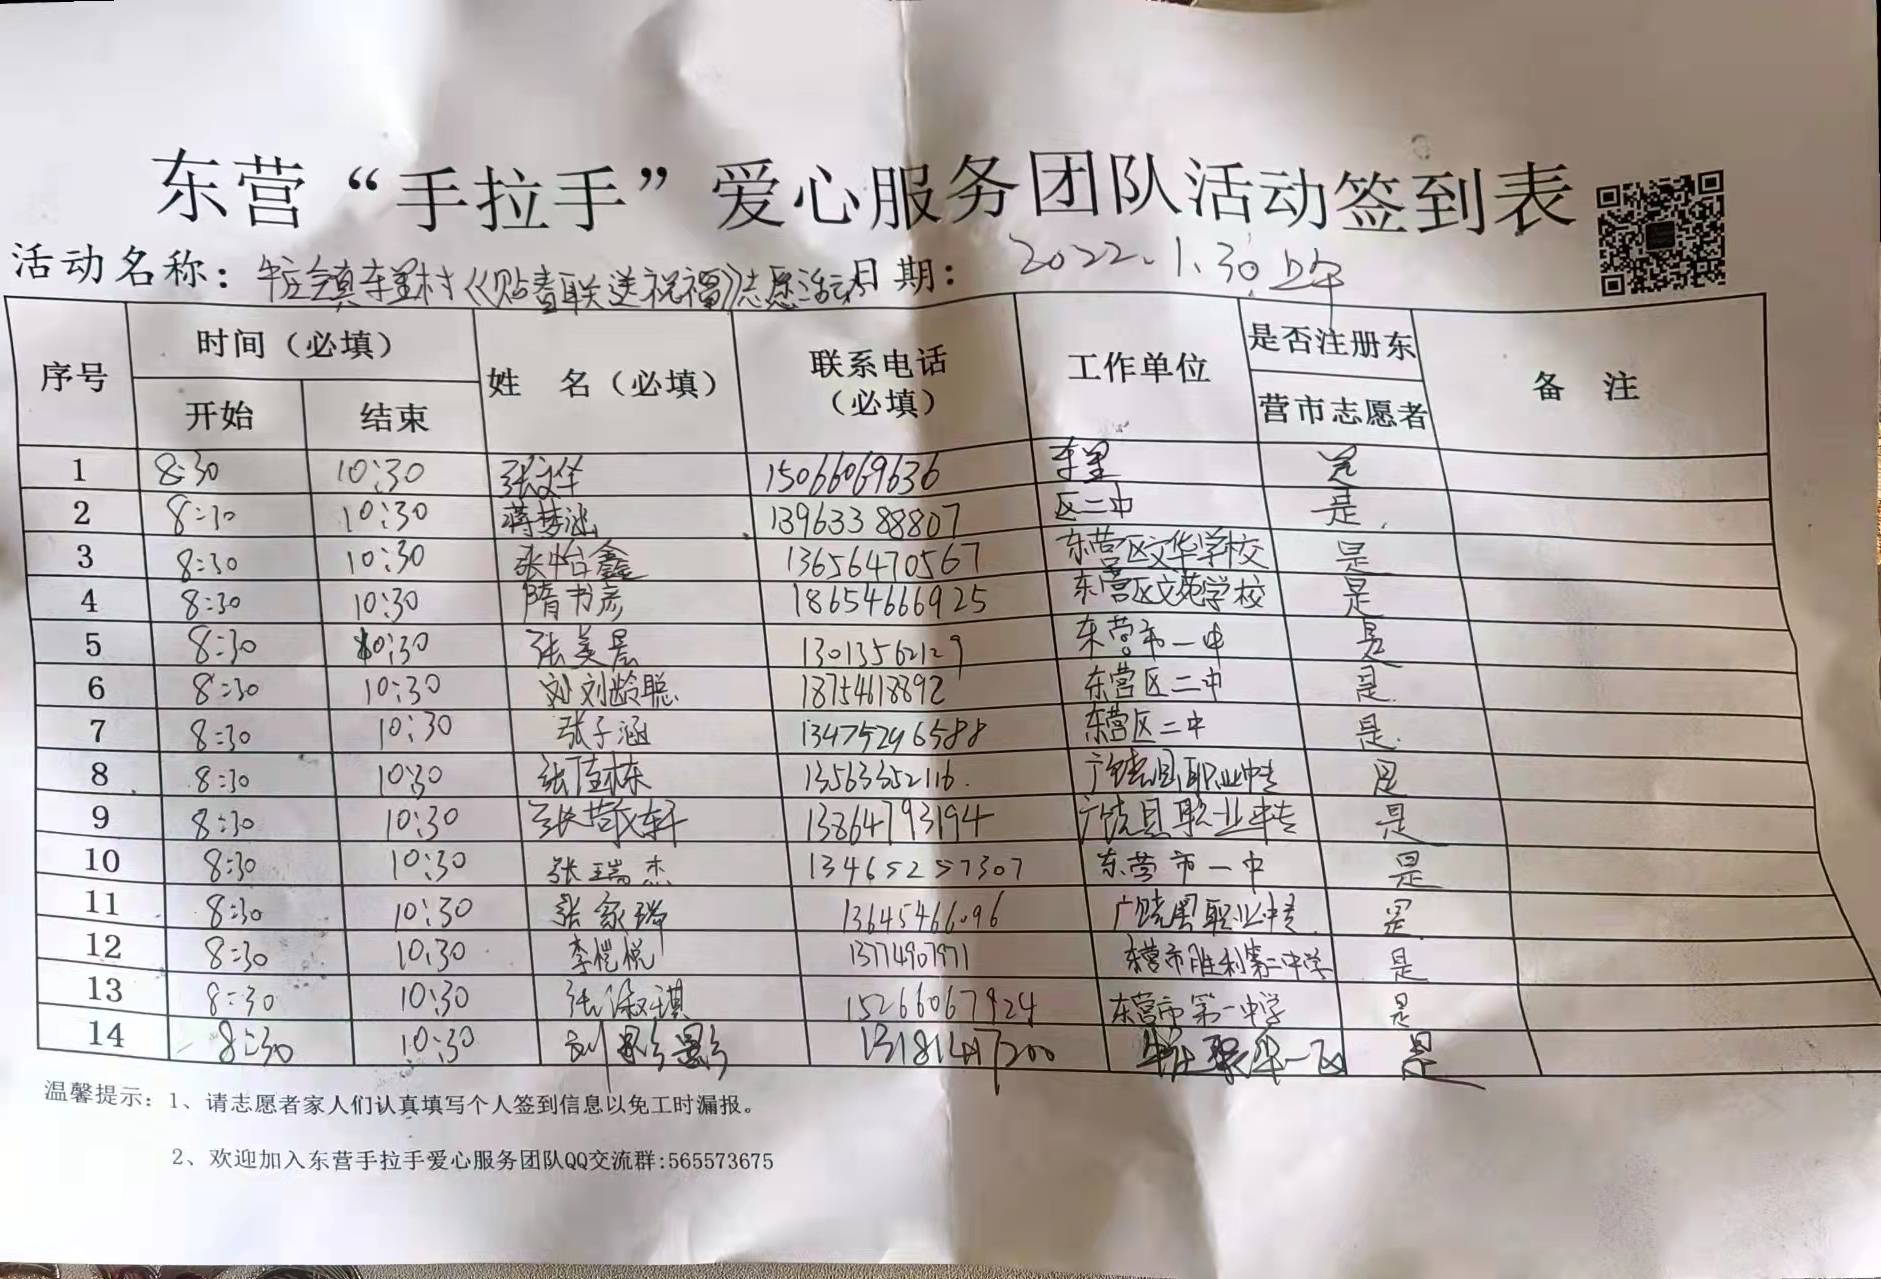 东营“手拉手”爱心服务团队活动签到表
活动名称：牛庄镇东里村《贴春联送祝福》志愿活动 日期：2022.1.30上午
序号 时间（必填） 姓 名（必填） 联系电话（必填） 工作单位 是否注册东营市志愿者 备 注
开始 结束
1 8:30 10:30 张文华 15066069636 东里 是
2 8:30 10:30 蒋梦 13963388807 区二中 是
3 8:30 10:30 张怡鑫 13656470567 东营区文华学校 是
4 8:30 10:30 隋书彦 18654666925 东营区文苑学校 是
5 8:30 10:30 张美晨 13013562129 东营市一中 是
6 8:30 10:30 刘龄聪 18754618892 东营区二中 是
7 8:30 10:30 张子涵 13475296588 东营区二中 是
8 8:30 10:30 张佳栋 13563352116 广饶县职业中专 是
9 8:30 10:30 张轩 13864793194 广饶县职业中专 是
10 8:30 10:30 张瑞杰 13465257307 东营市一中 是
11 8:30 10:30 张家瑞 13645466096 广饶县职业中专 是
12 8:30 10:30 李恺悦 13774907971 东营市胜利第二中学 是
13 8:30 10:30 张淑琪 15266067924 东营市第一中学 是
14 8:30 10:30 刘影影 一区 是
温馨提示：1、请志愿者家人们认真填写个人签到信息以免工时漏报。
2、欢迎加入东营手拉手爱心服务团队QQ交流群:565573675